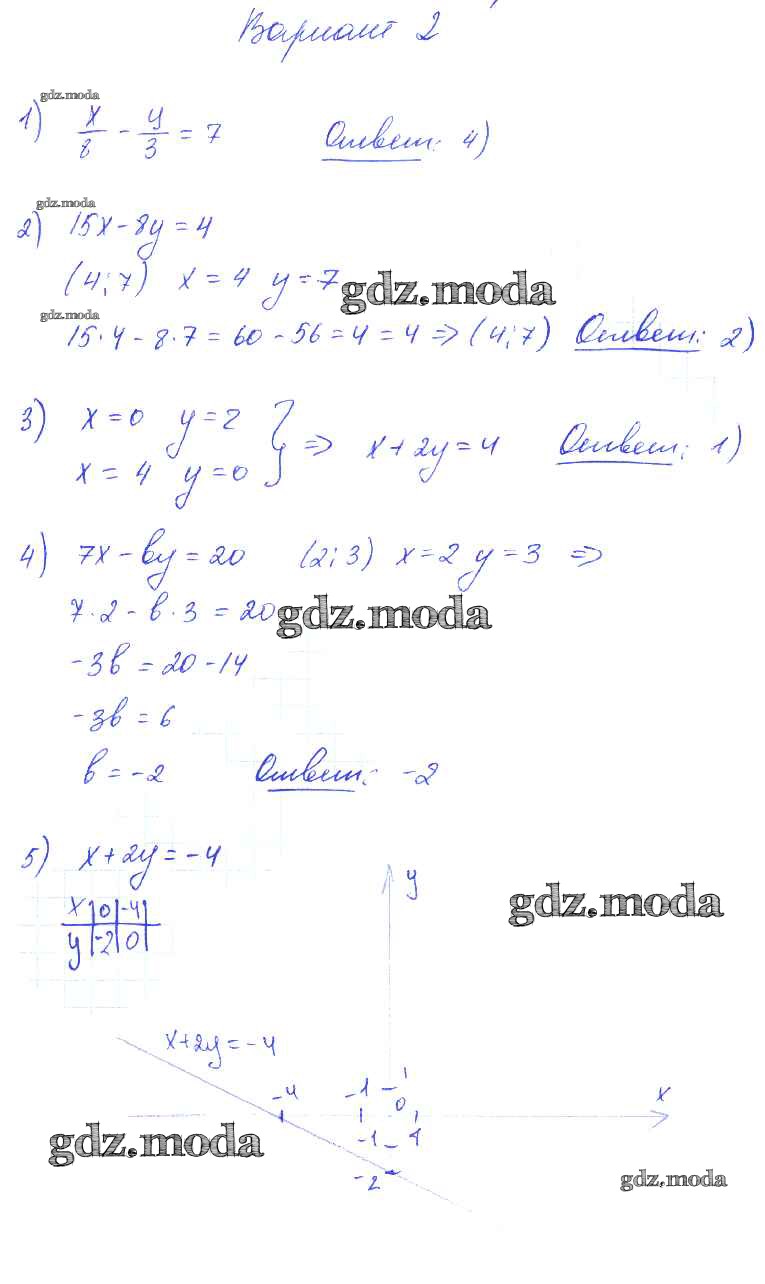 Вариант 2
gdz.moda
1) x/8 - y/3 = 7 Ответ: 4)
gdz.moda
2) 15x - 8y = 4
(4; 7) x = 4 y = 7
gdz.moda
gdz.moda
15·4 - 8·7 = 60 - 56 = 4 = 4 => (4; 7) Ответ: 2)
3) x = 0 y = 2
x = 4 y = 0 } => x + 2y = 4 Ответ: 1)
4) 7x - by = 20 (2; 3) x = 2 y = 3 =>
7·2 - b·3 = 20
gdz.moda
-3b = 20 - 14
-3b = 6
b = -2 Ответ: -2
5) x + 2y = -4
y
x | 0 | -4 |
y | -2 | 0 |
gdz.moda
x + 2y = -4
-4 -1 1 0 x
-1 1
gdz.moda
-2
gdz.moda